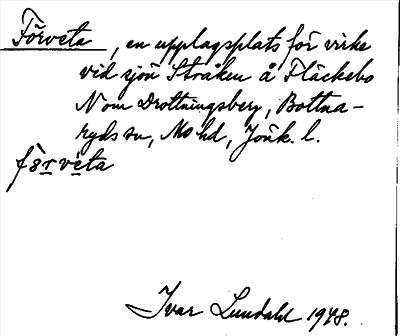 Förveta, en upplagsplats för virke
vid sjön Stråken å Fläckebo
N om Drottningsberg, Bottna-
ryds sn, Mo hd, Jönk. l.
fö̀rvéta
Ivar Lundahl 1948.